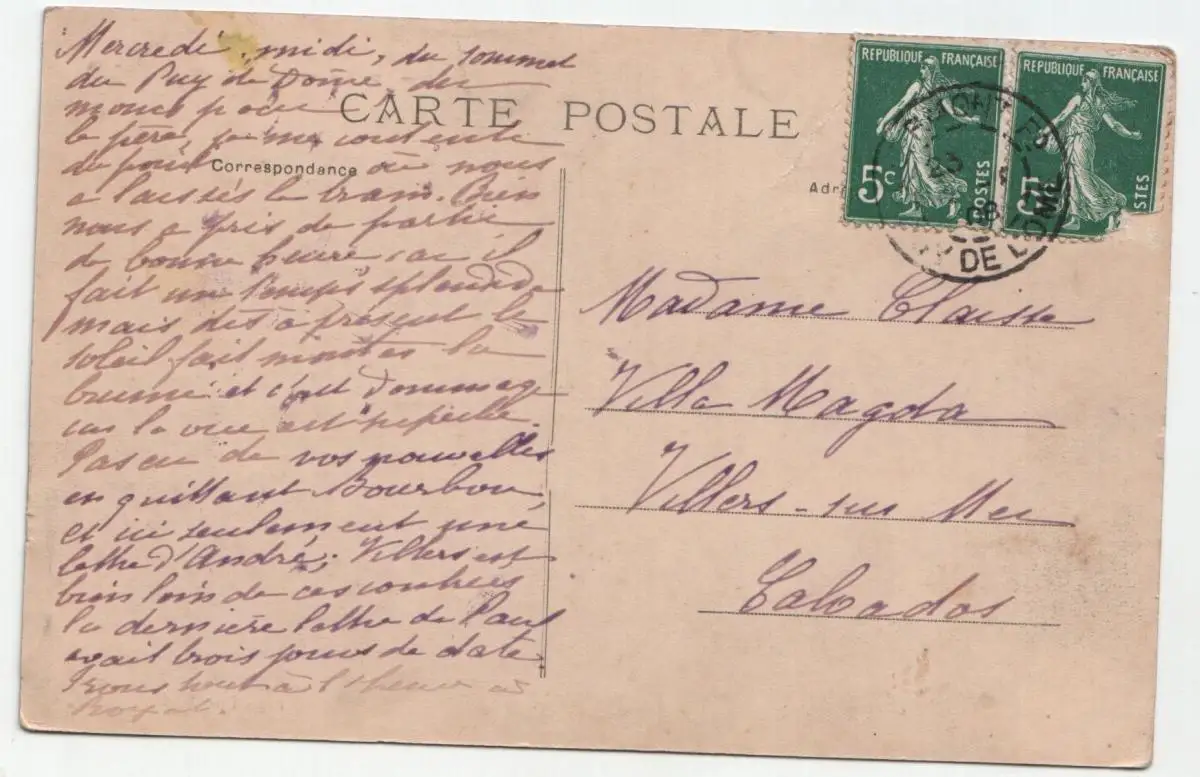 Mercredi, midi, du sommet
du Puy de Dôme, du
moins pour
le père, je me contente
de où nous
a laissés le tram. Bien
nous a pris de partir
de bonne heure car il
fait un temps splendide
mais dès à présent le
soleil fait monter la
brume et c'est dommage
car la vue est superbe.
Pas eu de vos nouvelles
en quittant Bourbon,
et ici seulement une
lettre d'André. Villers est
bien loin de ces contrées
la dernière lettre de Paul
avait trois jours de date.
à l'heure à
Royat.
CARTE POSTALE
Correspondance
Adr
REPUBLIQUE FRANÇAISE
5c
POSTES
REPUBLIQUE FRANÇAISE
5c
STES
23
08
DE DOME
Madame Clausse
Villa Magda
Villers-sur Mer
Calvados